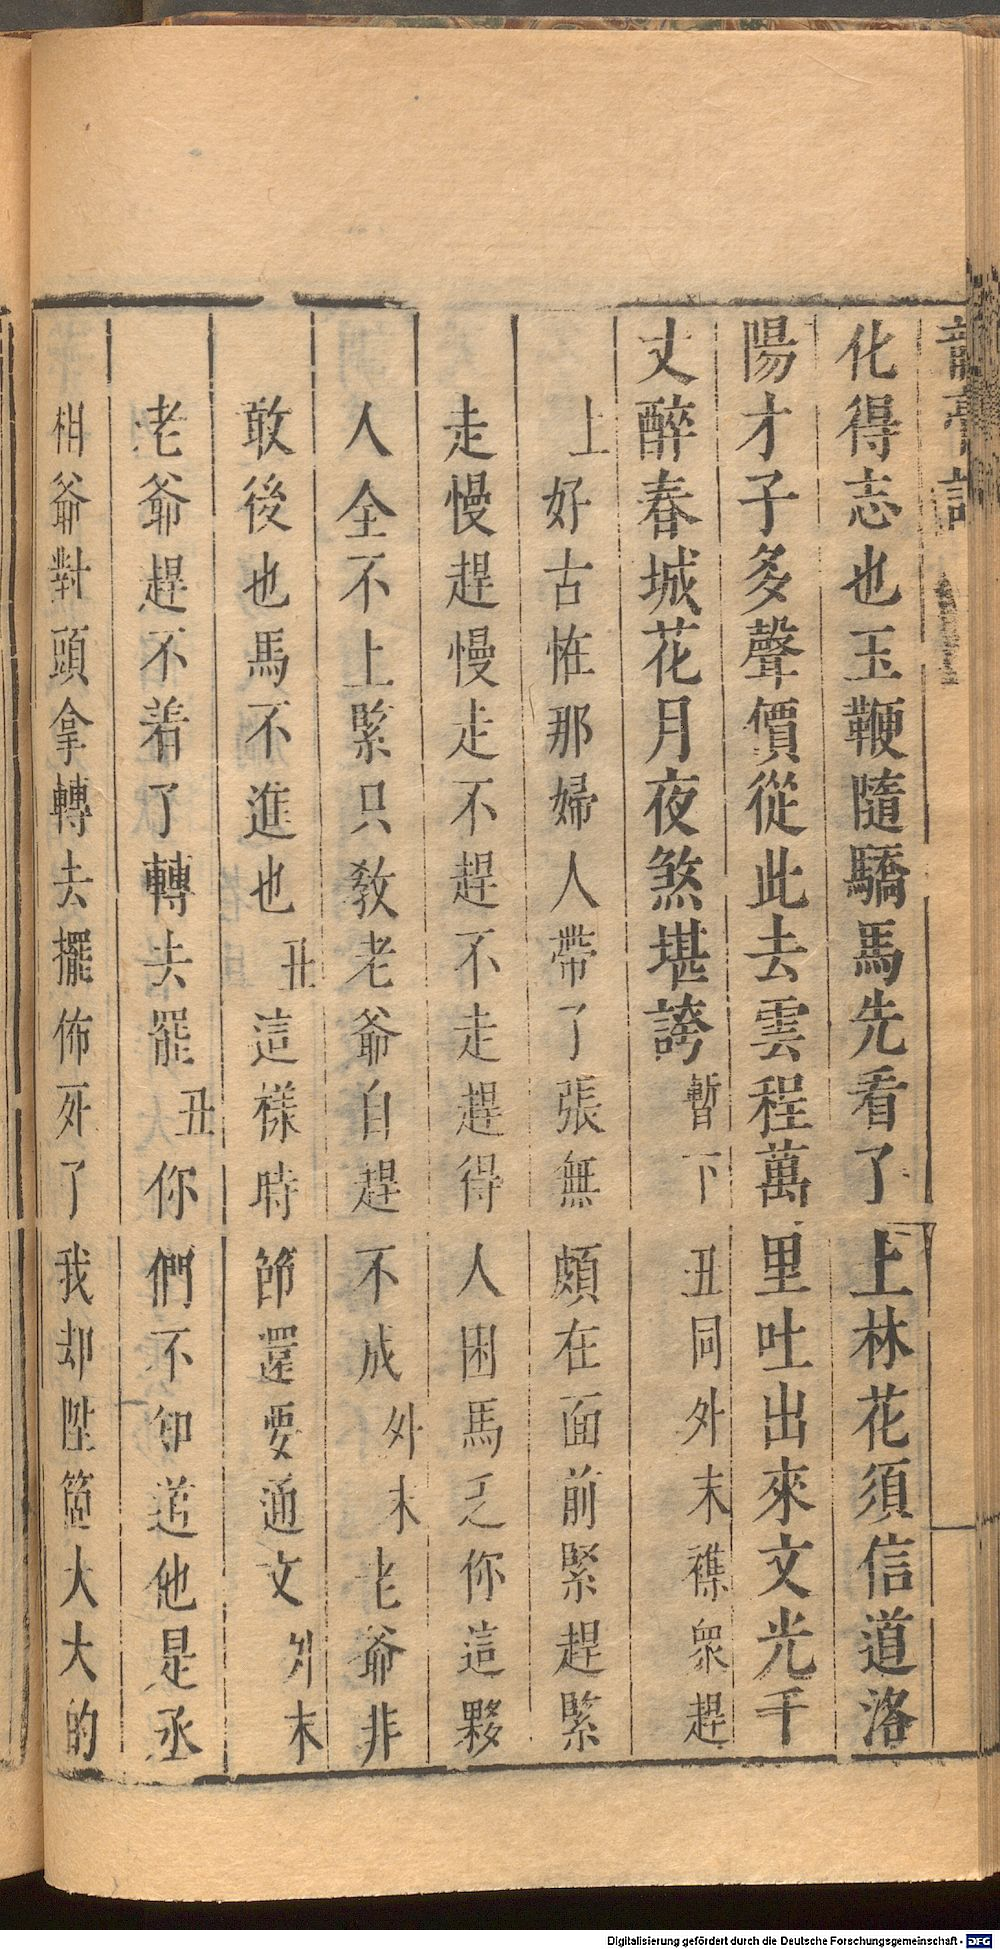 龍膏記
化得志也玉鞭隨驕馬先看了上林花須信道洛
陽才子多聲價從此去雲程萬里吐出來文光千
丈醉春城花月夜煞堪誇暫下丑同外末襍衆趕
上好古恠那婦人帶了張無頗在面前緊趕緊
走慢趕慢走不趕不走趕得人困馬乏你這夥
人全不上緊只教老爺自趕不成外末老爺非
敢後也馬不進也丑這樣時節還要通文外末
老爺趕不着了轉去罷丑你們不知道他是丞
相爺對頭拿轉去擺佈死了我却陞箇大大的
Digitalisierung gefördert durch die Deutsche Forschungsgemeinschaft - DFG